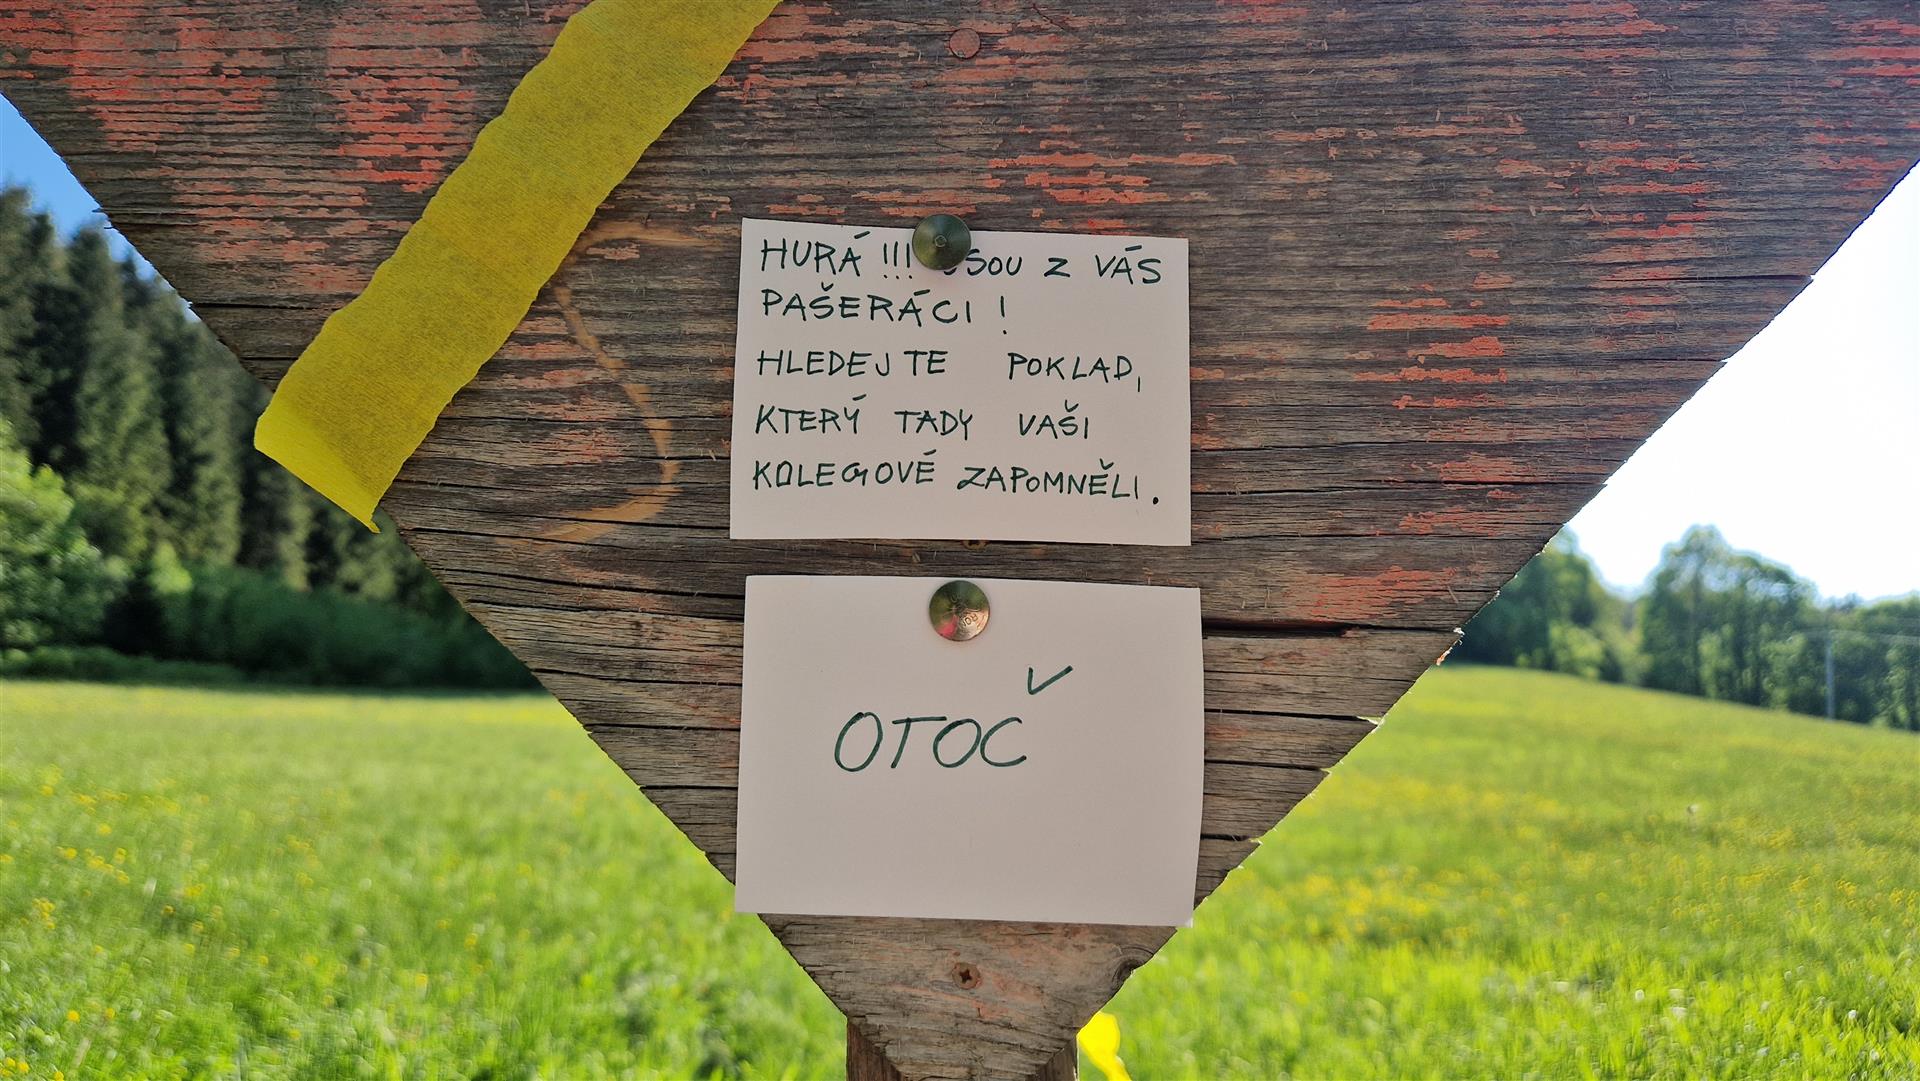 HURÁ !!! JSOU Z VÁS
PAŠERÁCI !
HLEDEJTE POKLAD,
KTERÝ TADY VAŠI
KOLEGOVÉ ZAPOMNĚLI.
OTOČ